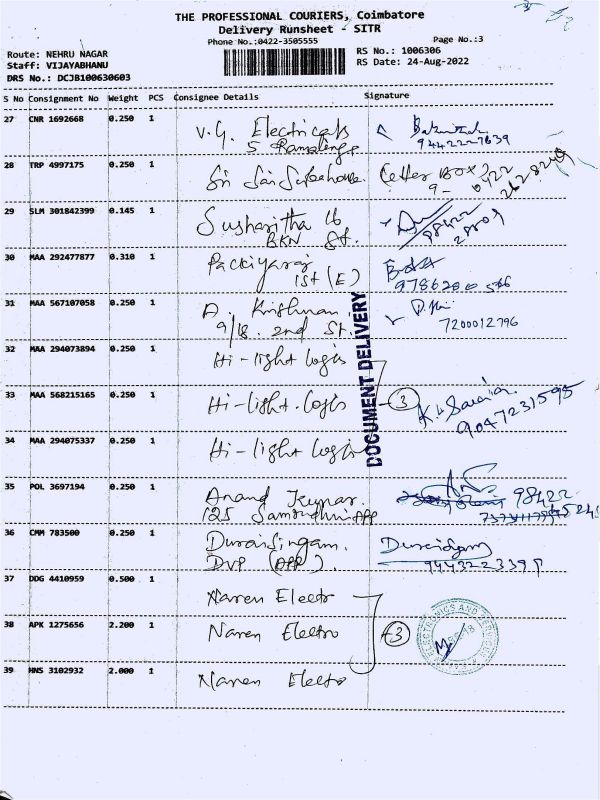 THE PROFESSIONAL COURIERS, Coimbatore
Delivery Runsheet - SITR
Phone No.:0422-3505555
Page No.:3
Route: NEHRU NAGAR
Staff: VIJAYABHANU
DRS No.: DCJB100630603
RS No.: 1006306
RS Date: 24-Aug-2022
S No Consignment No Weight PCS Consignee Details Signature
27 CNR 1692668 0.250 1 V.G. Electricals
5
28 TRP 4997175 0.250 1 Sri Sai (Letter Box)
29 SLM 301842399 0.145 1 Susharitha 16
BKN St.
98422
30 MAA 292477877 0.310 1 Packiyaraj
1st (E)
31 MAA 567107058 0.250 1 A. Krishnan
9/18. 2nd St.
7200012796
DOCUMENT DELIVERY
32 MAA 294073894 0.250 1 Hi-light logis
33 MAA 568215165 0.250 1 Hi-light. logis 3
9047231595
34 MAA 294075337 0.250 1 Hi-light logis
35 POL 3697194 0.250 1 Anand Kumar. 98422
125
36 CMM 783500 0.250 1 Duraisingam.
DVP (APP).
37 DDG 4410959 0.500 1 Naren Electro
38 APK 1275656 2.200 1 Naren Electro 3
39 MNS 3102932 2.000 1 Naren Electro